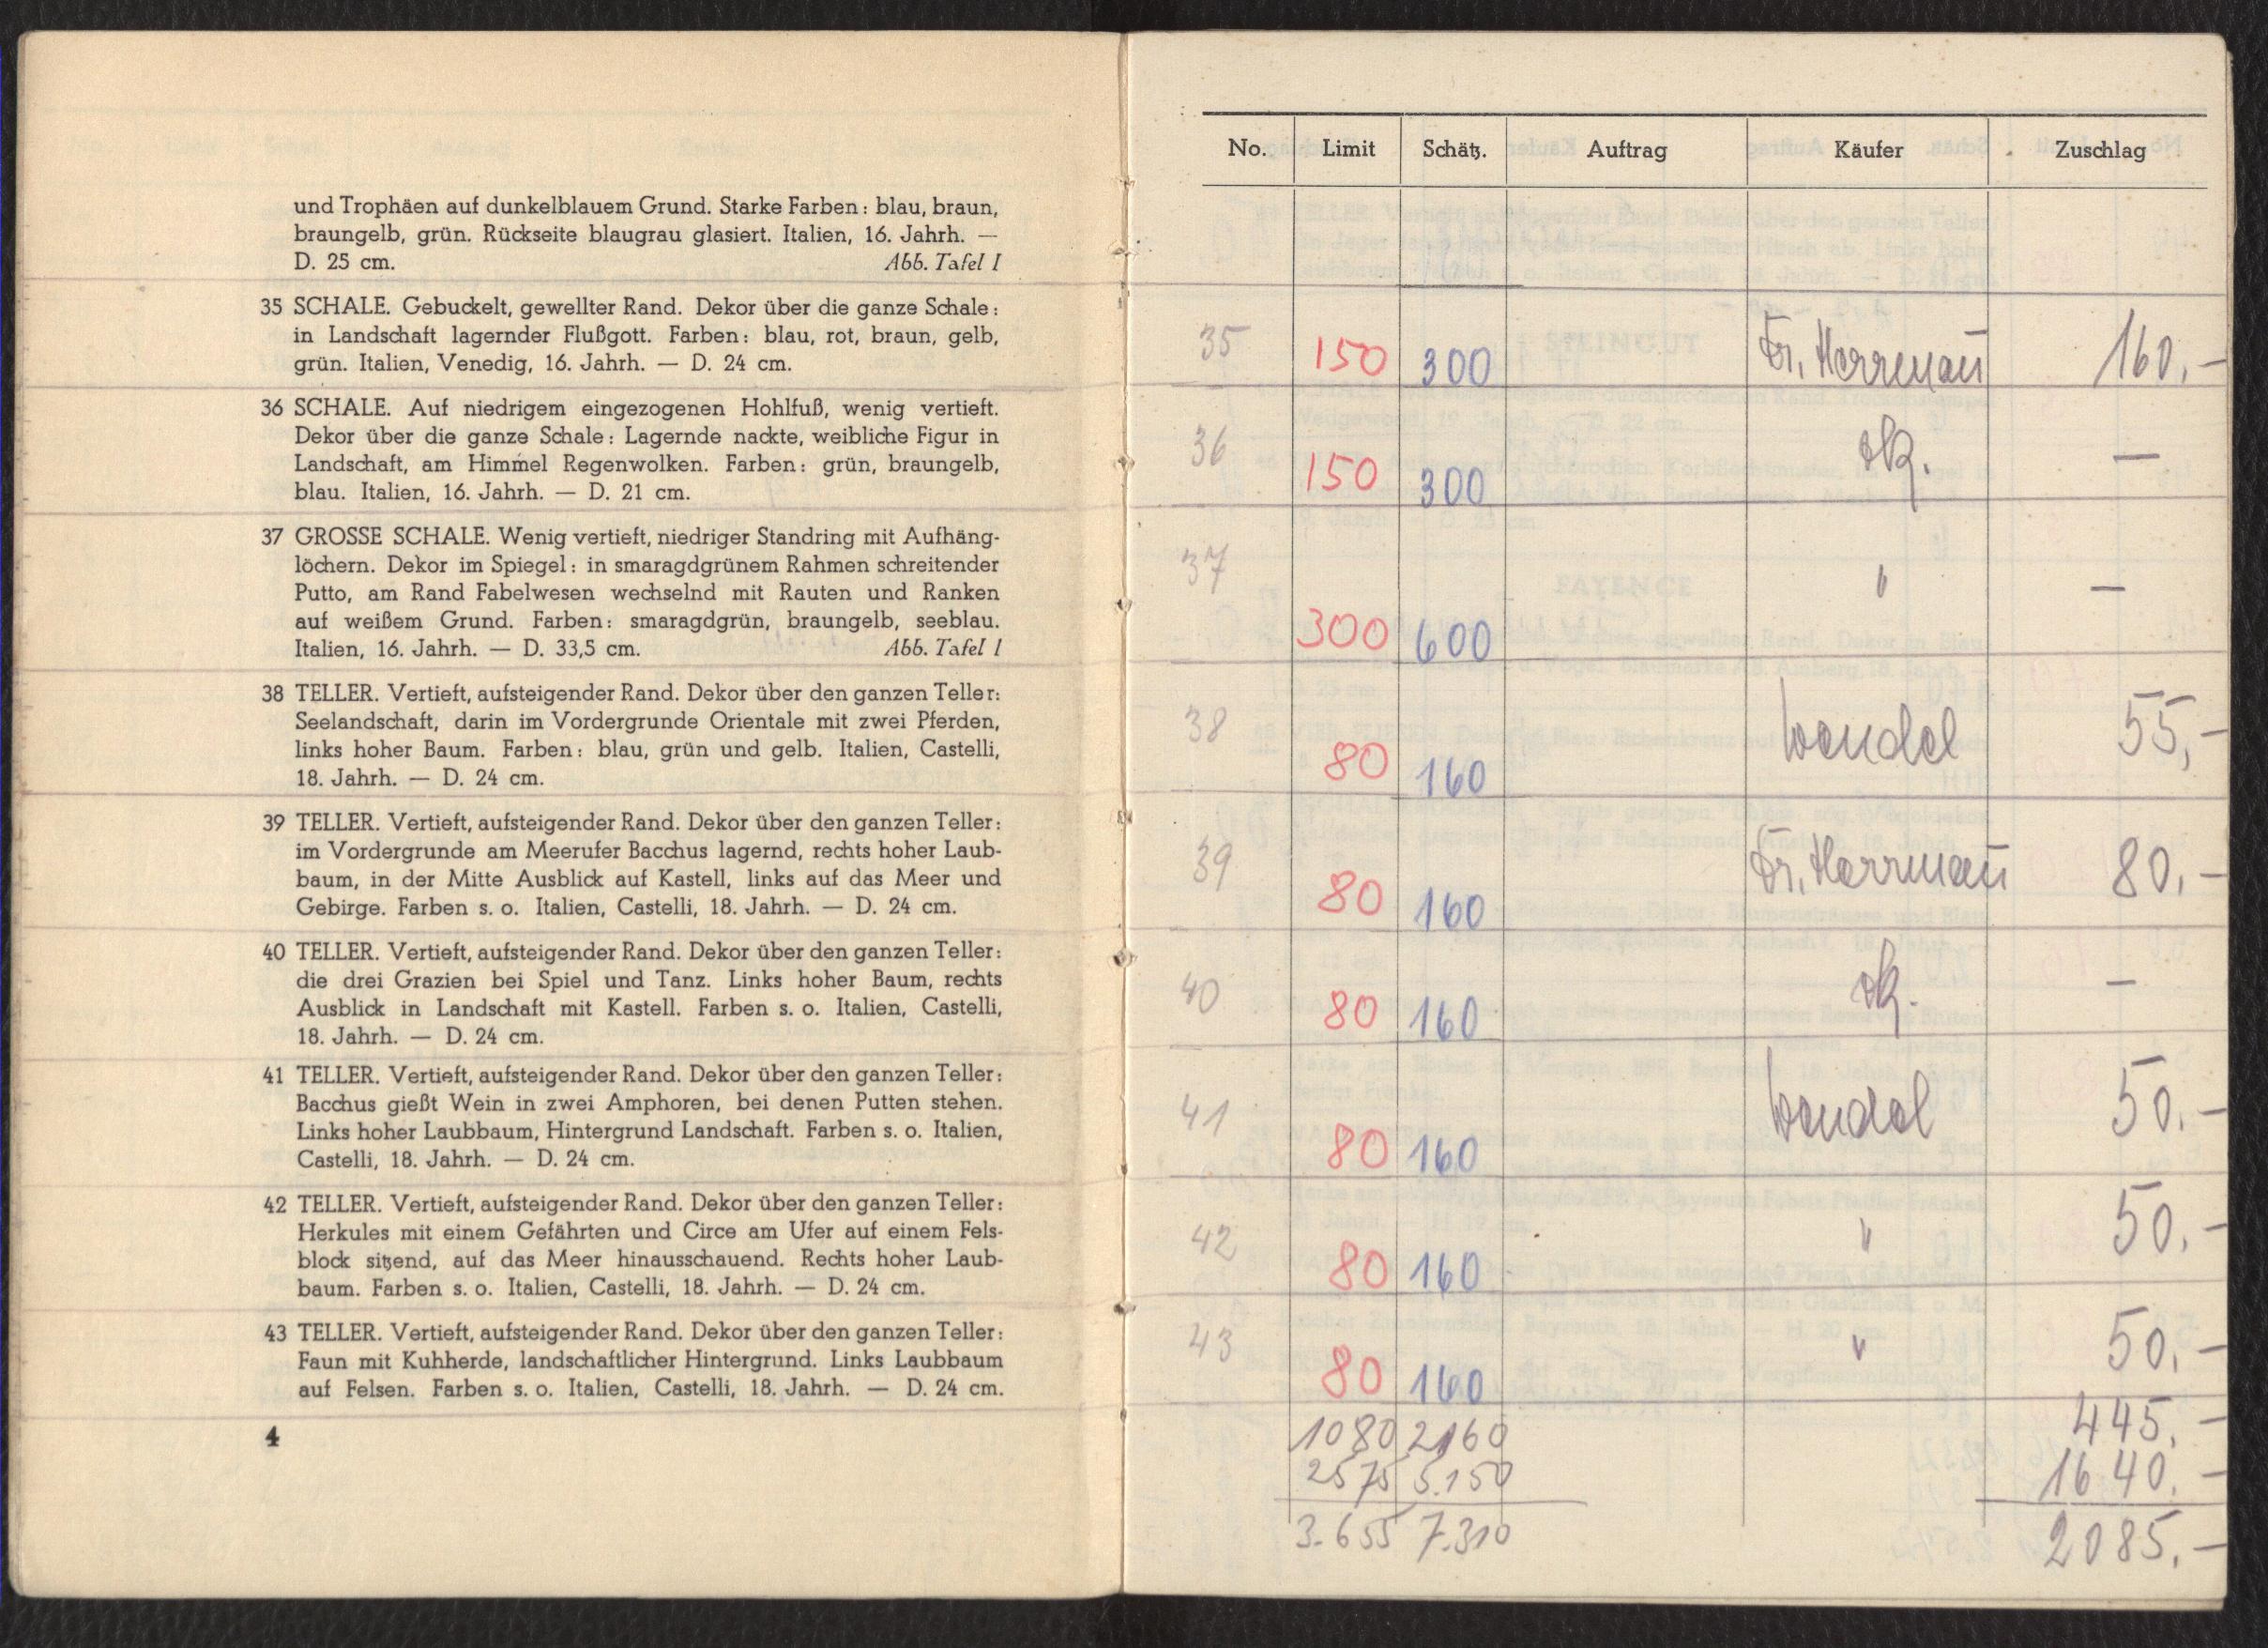 und Trophäen auf dunkelblauem Grund. Starke Farben: blau, braun,
braungelb, grün. Rückseite blaugrau glasiert. Italien, 16. Jahrh. —
D. 25 cm. Abb. Tafel I
35 SCHALE. Gebuckelt, gewellter Rand. Dekor über die ganze Schale:
in Landschaft lagernder Flußgott. Farben: blau, rot, braun, gelb,
grün. Italien, Venedig, 16. Jahrh. — D. 24 cm.
36 SCHALE. Auf niedrigem eingezogenen Hohlfuß, wenig vertieft.
Dekor über die ganze Schale: Lagernde nackte, weibliche Figur in
Landschaft, am Himmel Regenwolken. Farben: grün, braungelb,
blau. Italien, 16. Jahrh. — D. 21 cm.
37 GROSSE SCHALE. Wenig vertieft, niedriger Standring mit Aufhäng-
löchern. Dekor im Spiegel: in smaragdgrünem Rahmen schreitender
Putto, am Rand Fabelwesen wechselnd mit Rauten und Ranken
auf weißem Grund. Farben: smaragdgrün, braungelb, seeblau.
Italien, 16. Jahrh. — D. 33,5 cm. Abb. Tafel I
38 TELLER. Vertieft, aufsteigender Rand. Dekor über den ganzen Teller:
Seelandschaft, darin im Vordergrunde Orientale mit zwei Pferden,
links hoher Baum. Farben: blau, grün und gelb. Italien, Castelli,
18. Jahrh. — D. 24 cm.
39 TELLER. Vertieft, aufsteigender Rand. Dekor über den ganzen Teller:
im Vordergrunde am Meerufer Bacchus lagernd, rechts hoher Laub-
baum, in der Mitte Ausblick auf Kastell, links auf das Meer und
Gebirge. Farben s. o. Italien, Castelli, 18. Jahrh. — D. 24 cm.
40 TELLER. Vertieft, aufsteigender Rand. Dekor über den ganzen Teller:
die drei Grazien bei Spiel und Tanz. Links hoher Baum, rechts
Ausblick in Landschaft mit Kastell. Farben s. o. Italien, Castelli,
18. Jahrh. — D. 24 cm.
41 TELLER. Vertieft, aufsteigender Rand. Dekor über den ganzen Teller:
Bacchus gießt Wein in zwei Amphoren, bei denen Putten stehen.
Links hoher Laubbaum, Hintergrund Landschaft. Farben s. o. Italien,
Castelli, 18. Jahrh. — D. 24 cm.
42 TELLER. Vertieft, aufsteigender Rand. Dekor über den ganzen Teller:
Herkules mit einem Gefährten und Circe am Ufer auf einem Fels-
block sitzend, auf das Meer hinausschauend. Rechts hoher Laub-
baum. Farben s. o. Italien, Castelli, 18. Jahrh. — D. 24 cm.
43 TELLER. Vertieft, aufsteigender Rand. Dekor über den ganzen Teller:
Faun mit Kuhherde, landschaftlicher Hintergrund. Links Laubbaum
auf Felsen. Farben s. o. Italien, Castelli, 18. Jahrh. — D. 24 cm.
4
No. Limit Schätz. Auftrag Käufer Zuschlag
35 150 300 Dr. Herrmañ 160.-
36 150 300 —
37 300 600 " —
38 80 160 Wendel 55,-
39 80 160 Dr. Herrmañ 80.-
40 80 160 —
41 80 160 Wendel 50.-
42 80 160 " 50.-
43 80 160 " 50.-
1080 2160 445.-
2575 5.150 1640.-
3.655 7.310 2085.-